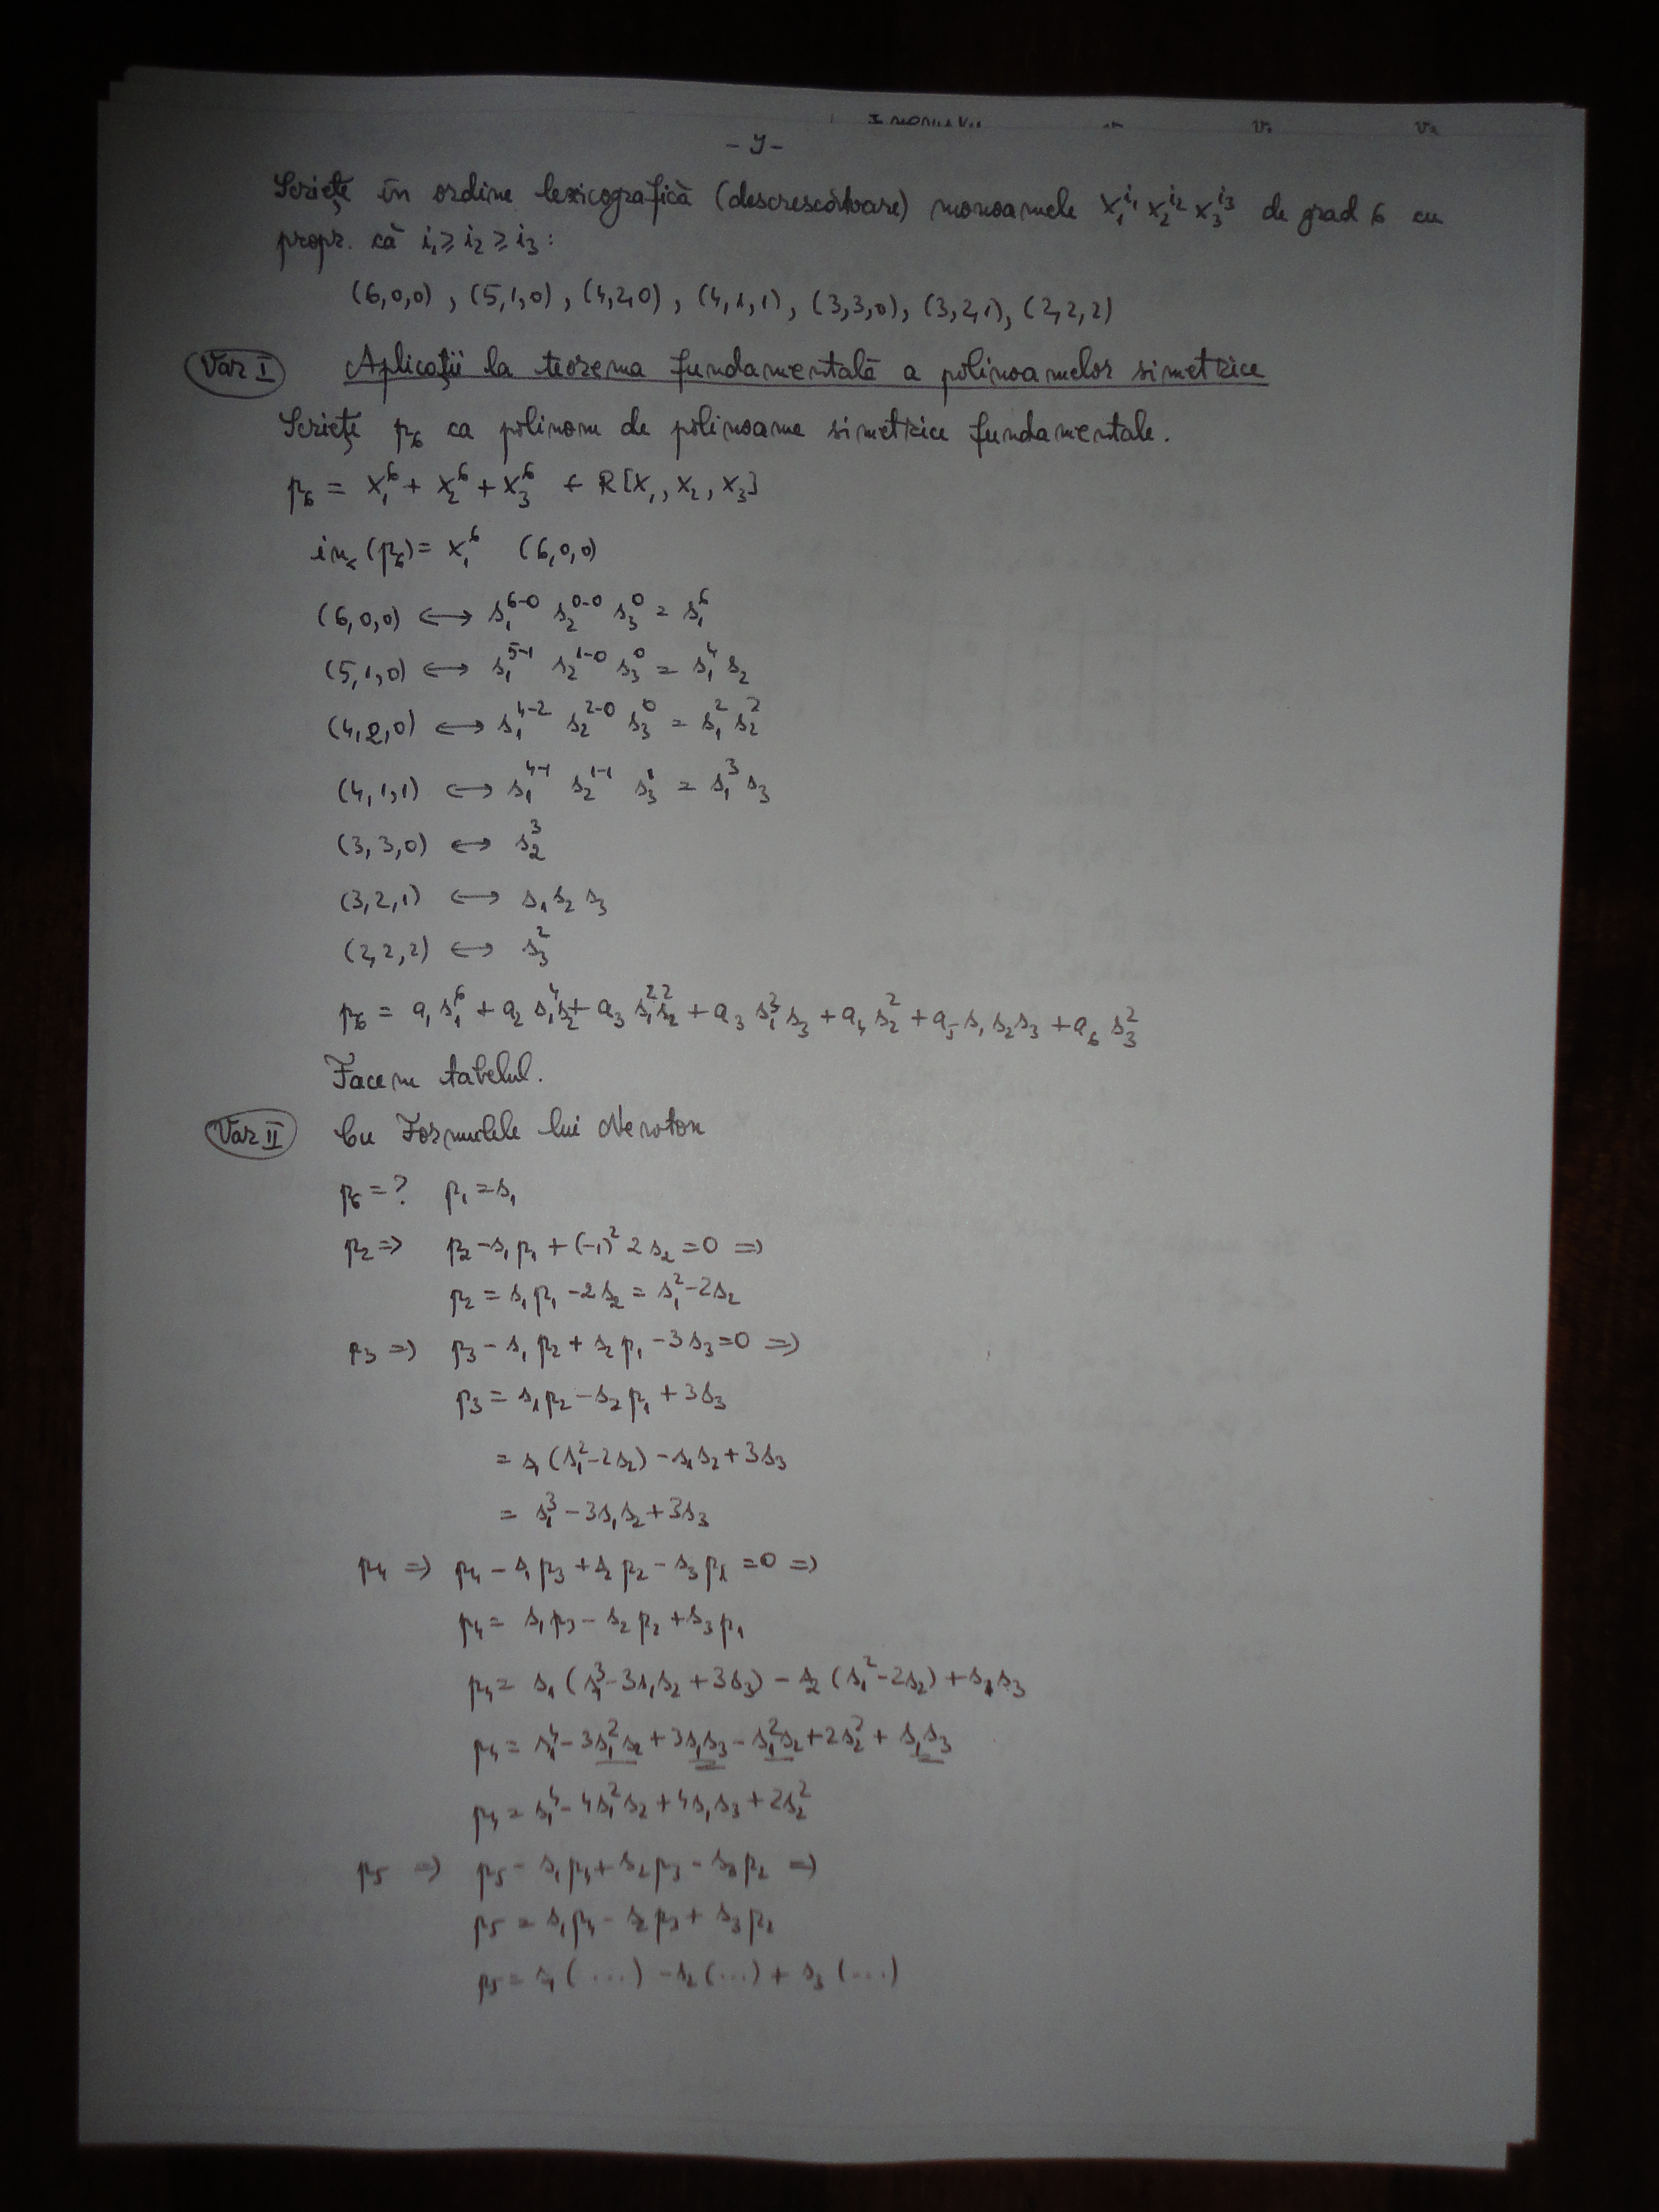 - 9 -
Scrieți în ordine lexicografică (descrescătoare) monoamele X₁^i₁ X₂^i₂ X₃^i₃ de grad 6 cu
propr. că i₁ ≥ i₂ ≥ i₃:
(6,0,0), (5,1,0), (4,2,0), (4,1,1), (3,3,0), (3,2,1), (2,2,2)
Var I Aplicații la teorema fundamentală a polinoamelor simetrice
Scrieți p₆ ca polinom de polinoame simetrice fundamentale.
p₆ = X₁⁶ + X₂⁶ + X₃⁶ ∈ R[X₁, X₂, X₃]
in<(p₆) = X₁⁶ (6,0,0)
(6,0,0) ⟷ s₁⁶⁻⁰ s₂⁰⁻⁰ s₃⁰ = s₁⁶
(5,1,0) ⟷ s₁⁵⁻¹ s₂¹⁻⁰ s₃⁰ = s₁⁴ s₂
(4,2,0) ⟷ s₁⁴⁻² s₂²⁻⁰ s₃⁰ = s₁² s₂²
(4,1,1) ⟷ s₁⁴⁻¹ s₂¹⁻¹ s₃¹ = s₁³ s₃
(3,3,0) ⟷ s₂³
(3,2,1) ⟷ s₁ s₂ s₃
(2,2,2) ⟷ s₃²
p₆ = a₁ s₁⁶ + a₂ s₁⁴ s₂ + a₃ s₁² s₂² + a₃ s₁³ s₃ + a₄ s₂² + a₅ s₁ s₂ s₃ + a₆ s₃²
Facem tabelul.
Var II Cu Formulele lui Newton
p₆ = ? p₁ = s₁
p₂ ⇒ p₂ - s₁p₁ + (-1)² 2s₂ = 0 ⇒
p₂ = s₁p₁ - 2s₂ = s₁² - 2s₂
p₃ ⇒ p₃ - s₁p₂ + s₂p₁ - 3s₃ = 0 ⇒
p₃ = s₁p₂ - s₂p₁ + 3s₃
= s₁(s₁² - 2s₂) - s₁s₂ + 3s₃
= s₁³ - 3s₁s₂ + 3s₃
p₄ ⇒ p₄ - s₁p₃ + s₂p₂ - s₃p₁ = 0 ⇒
p₄ = s₁p₃ - s₂p₂ + s₃p₁
p₄ = s₁(s₁³ - 3s₁s₂ + 3s₃) - s₂(s₁² - 2s₂) + s₁s₃
p₄ = s₁⁴ - 3s₁²s₂ + 3s₁s₃ - s₁²s₂ + 2s₂² + s₁s₃
p₄ = s₁⁴ - 4s₁²s₂ + 4s₁s₃ + 2s₂²
p₅ ⇒ p₅ - s₁p₄ + s₂p₃ - s₃p₂ ⇒
p₅ = s₁p₄ - s₂p₃ + s₃p₂
p₅ = s₁(...) - s₂(...) + s₃(...)